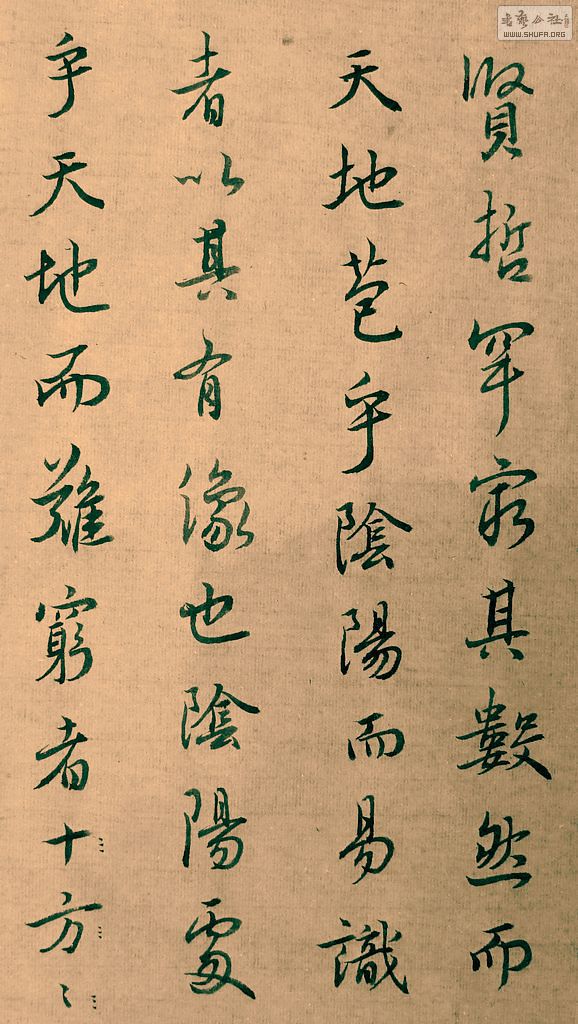 賢哲罕窮其數然而
天地苞乎陰陽而易識
者以其有像也陰陽處
乎天地而難窮者十方
WWW.SHUFA.ORG